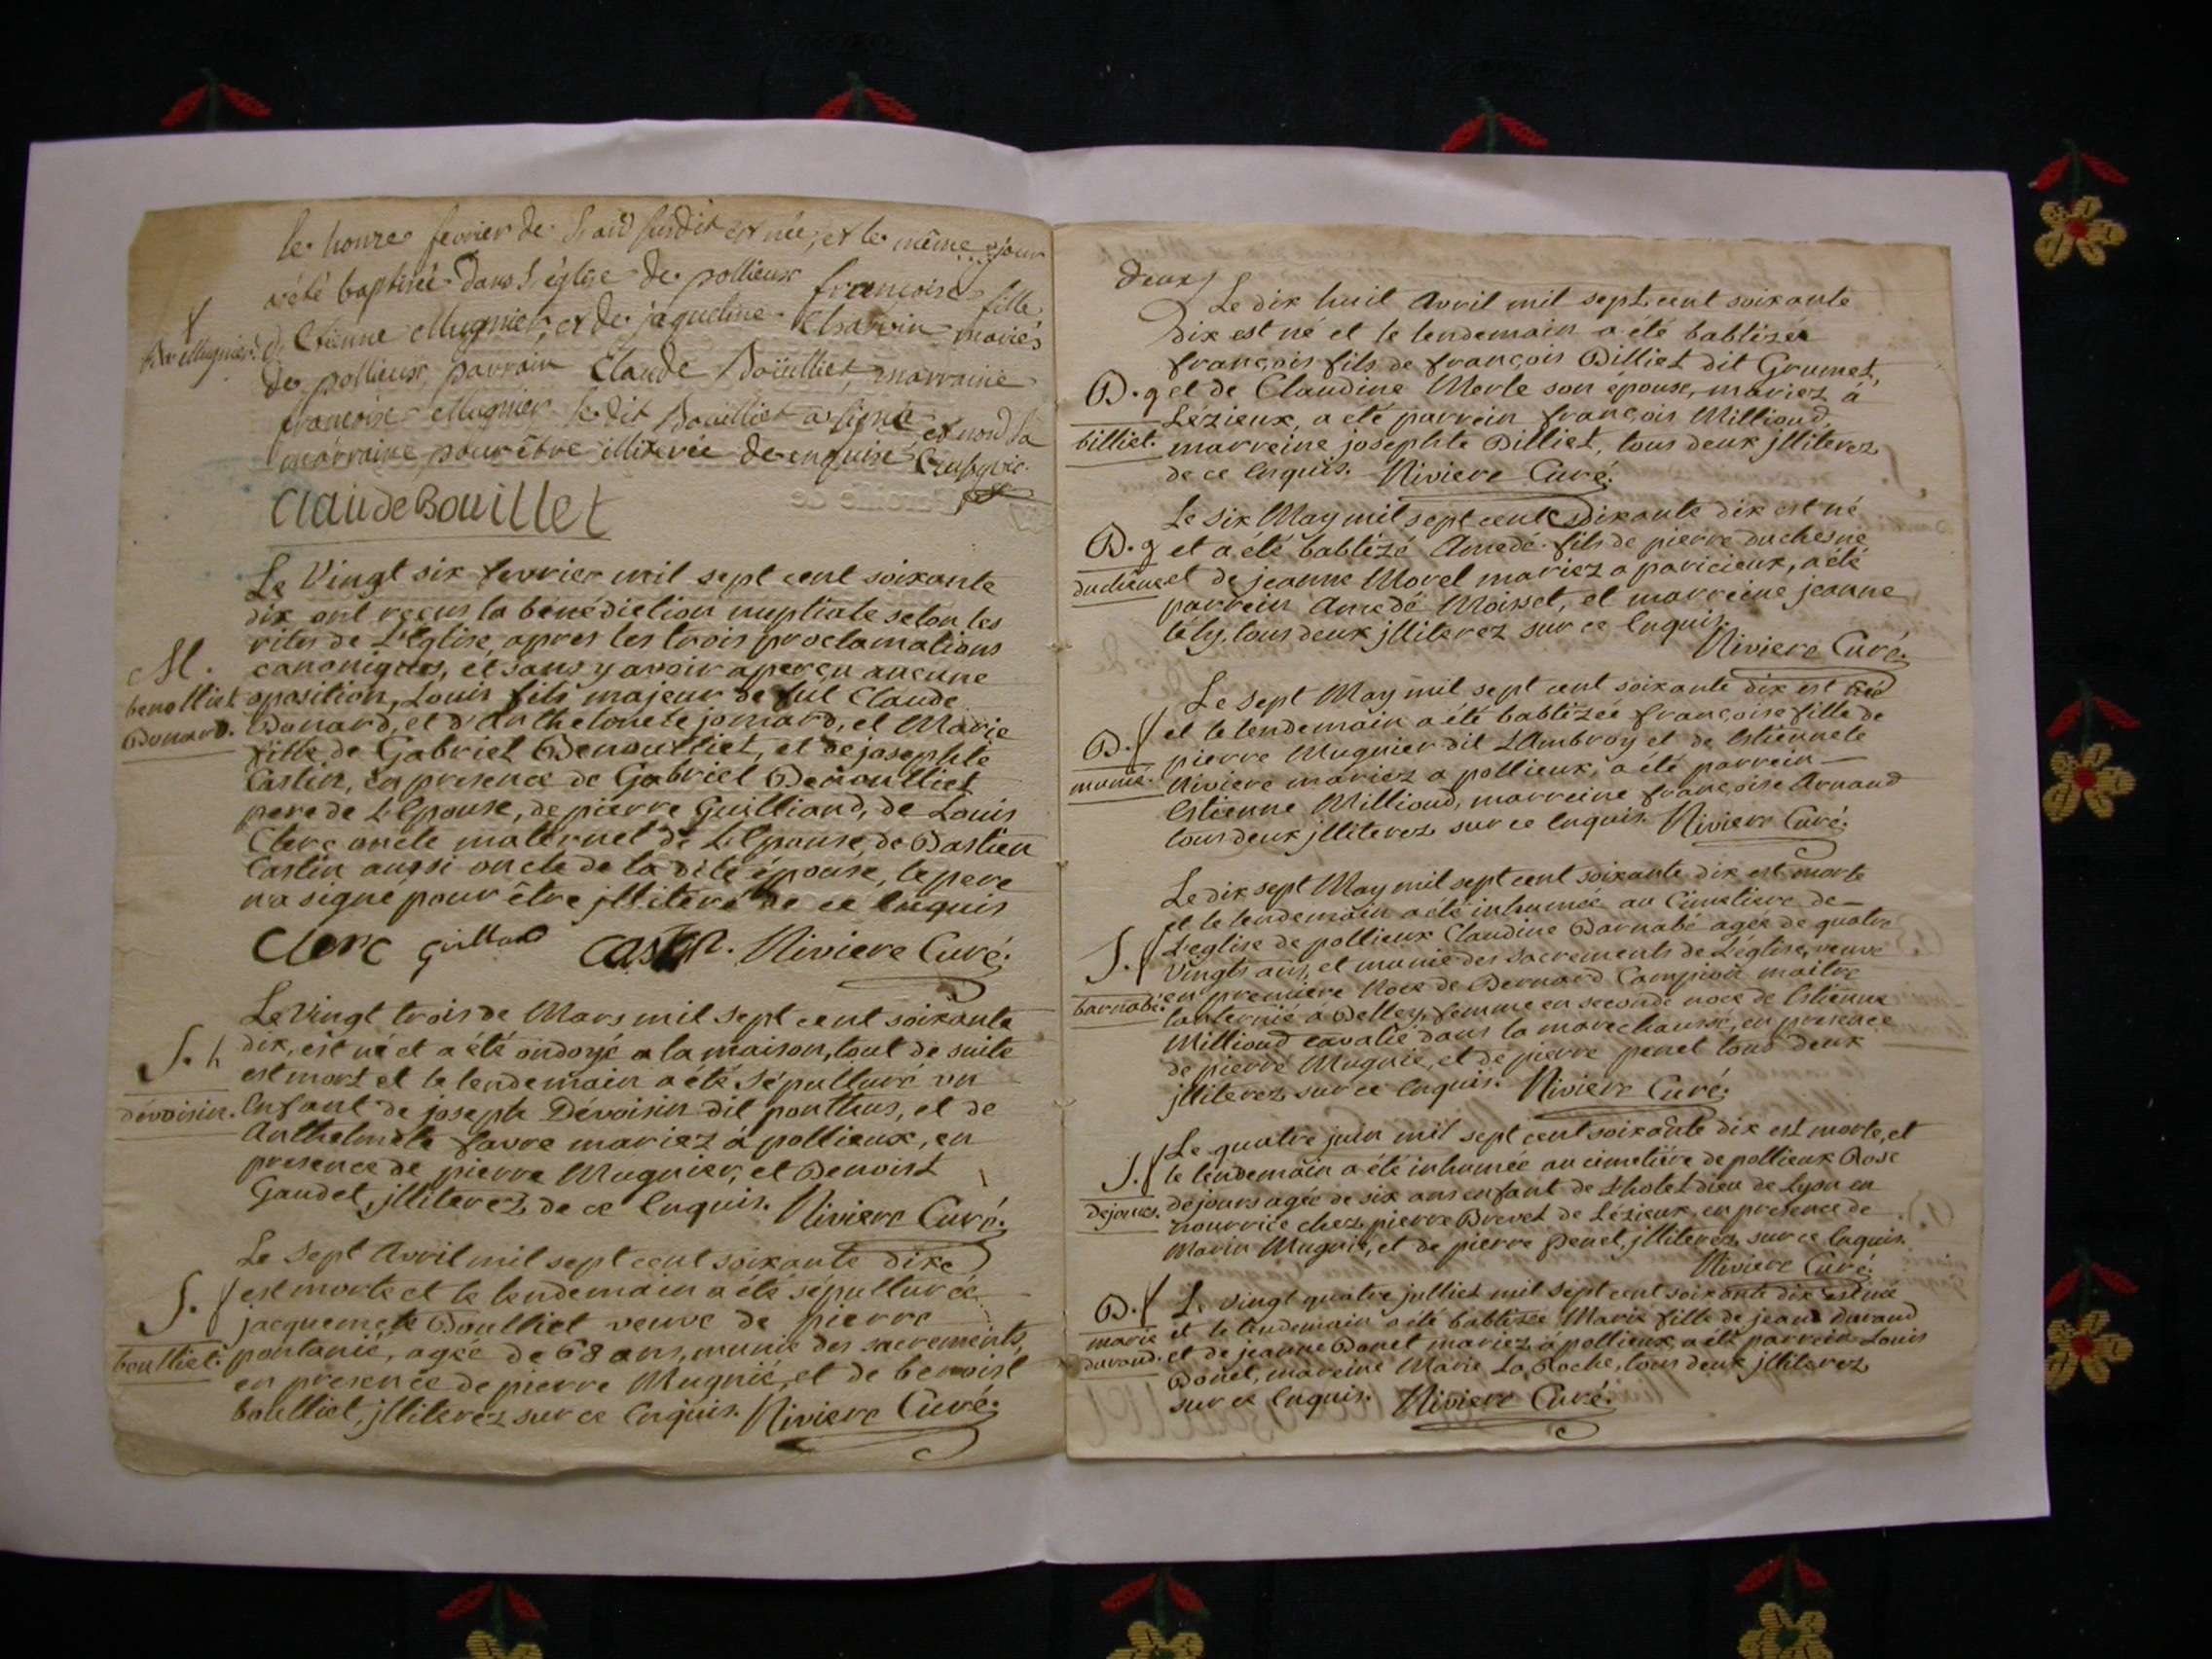 le honze fevrier de l'an susdit est née, et le même jour
a été baptisée dans l'église de pollieux françoise fille
B. f Mugnier. d'Etienne Mugnier, et de jaqueline Charvin mariés
de pollieux, parrain Claude Boüilliet, marraine
françoise Mugnier ledit Boüilliet a signé et non la
marraine pour être illiterée de enquise
Claude Bouillet
Le Vingt six fevrier mil sept cent soixante
dix ont reçus la bénédiction nuptiale selon les
rites de L'Eglise, apres les trois proclamations
M. canoniques, et sans y avoir aperçu aucune
benolliet oposition, Louis fils majeur de fut Claude
Bonard. Bonard, et d'Anthelmete jomard, et Marie
fille de Gabriel Benoulliet, et de josephte
Castin, en presence de Gabriel Benoulliet
pere de L'Epouse, de pierre Guilliand, de Louis
Clerc oncle maternel de L'Epouse, de Bastien
Castin aussi oncle de la dite épouse, le pere
na signé pour être jlliteré de ce Enquis
Clerc guilland castin. Riviere Curé.
Le Vingt trois de Mars mil sept cent soixante
S. h dix, est né et a été ondoyé a la maison, tout de suite
est mort et le lendemain a été sépulturé un
dévoisin. Enfant de joseph Dévoisin dit ponthus, et de
Anthelmete favre mariez à pollieux, en
presence de pierre Mugnier, et Benoist
Gaudet, jlliterez de ce Enquis. Riviere Curé.
Le Sept Avril mil sept cent soixante dixe
S. f est morte et le lendemain a été sépulturée
jacquemete Boulliet veuve de pierre
boulliet. pontanié, agée de 68 ans, munie des sacrements,
en presence de pierre Mugnié, et de benoist
boulliet, jlliterez sur ce Enquis. Riviere Curé.
deux
Le dix huit Avril mil sept cent soixante
dix est né et le lendemain a été babtizée
françois fils de françois Billiet dit Grumet,
B. g et de Claudine Merle son épouse, mariez à
Lézieux, a été parrein françois Millioud,
billiet. marreine josephte Billiet, tous deux jlliterez
de ce Enquis. Riviere Curé.
Le six May mil sept cent soixante dix est né
B. g et a été babtizé Amedé fils de pierre duchesne
duchêne et de jeanne Morel mariez a paricieux, a été
parrein Amedé Moisset, et marreine jeanne
tély, tous deux jlliterez sur ce Enquis.
Riviere Curé.
Le sept May mil sept cent soixante dix est née
et le lendemain a été babtizée françoise fille de
B. f pierre Mugnier dit L'Ambroy et de Estiennete
munié. Riviere mariez a pollieux, a été parrein
Estienne Millioud, marreine françoise Arnaud
tous deux jlliterez sur ce Enquis. Riviere Curé.
Le dix sept May mil sept cent soixante dix est morte
et le lendemain a été inhumée au Cimetiere de
S. f L'eglise de pollieux Claudine Barnabé agée de quatre
Vingts ans, et munie des sacrements de L'église, veuve
barnabé. en premiere Noce de Bernard Campion maitre
lanternié a Belley, femme en seconde noce de Estienne
Millioud cavalié dans la marechaussé, en presence
de pierre Mugnié, et de pierre penet tous deux
jlliterez sur ce Enquis. Riviere Curé.
Le quatre juin mil sept cent soixante dix est morte, et
S. f le lendemain a été inhumée au cimetiére de pollieux Rose
dejours. dejours agée de six ans enfant de L'hotel dieu de Lyon en
nourrice chez pierre Brevet de Lézieux, en presence de
Marin Mugnié, et de pierre penet, jlliterez sur ce Enquis.
Riviere Curé.
B. f Le vingt quatre julliet mil sept cent soixante dix est née
marie et le lendemain a été babtizée Marie fille de jean durand
durand. et de jeanne Bonet mariez à pollieux, a été parrein Louis
Bonet, mareine Marie La Roche, tous deux jlliterez
sur ce Enquis. Riviere Curé.